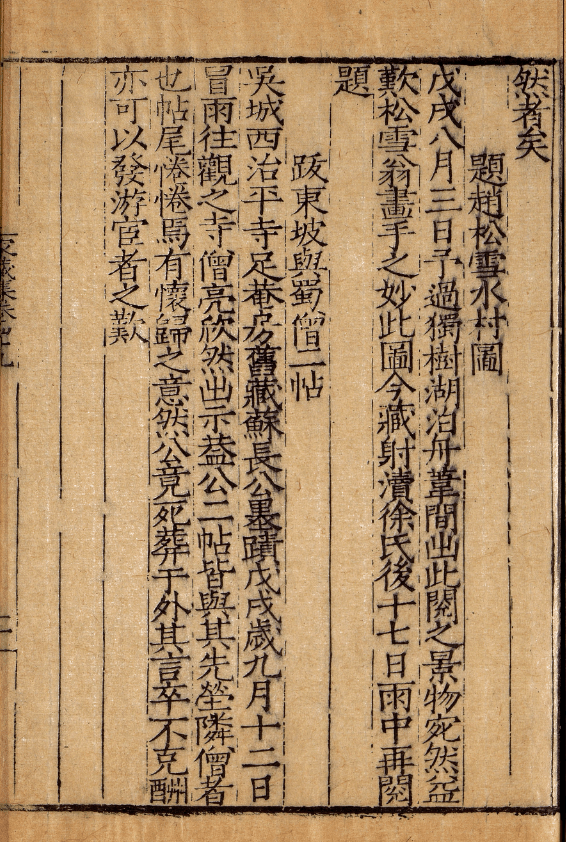 然者矣
題趙松雪水村圖
戊戌八月三日予過獨樹湖泊舟葦間出此閱之景物宛然益
歎松雪翁畫手之妙此圖今藏射瀆徐氏後十七日雨中再閱
題
跋東坡與蜀僧二帖
吳城西治平寺足菴房舊藏蘇長公墨蹟戊戌歲九月十二日
冒雨往觀之寺僧亮欣然出示葢公二帖皆與其先塋隣僧者
也帖尾惓惓焉有懷歸之意然公竟死葬于外其言卒不克酬
亦可以發游宦者之歎